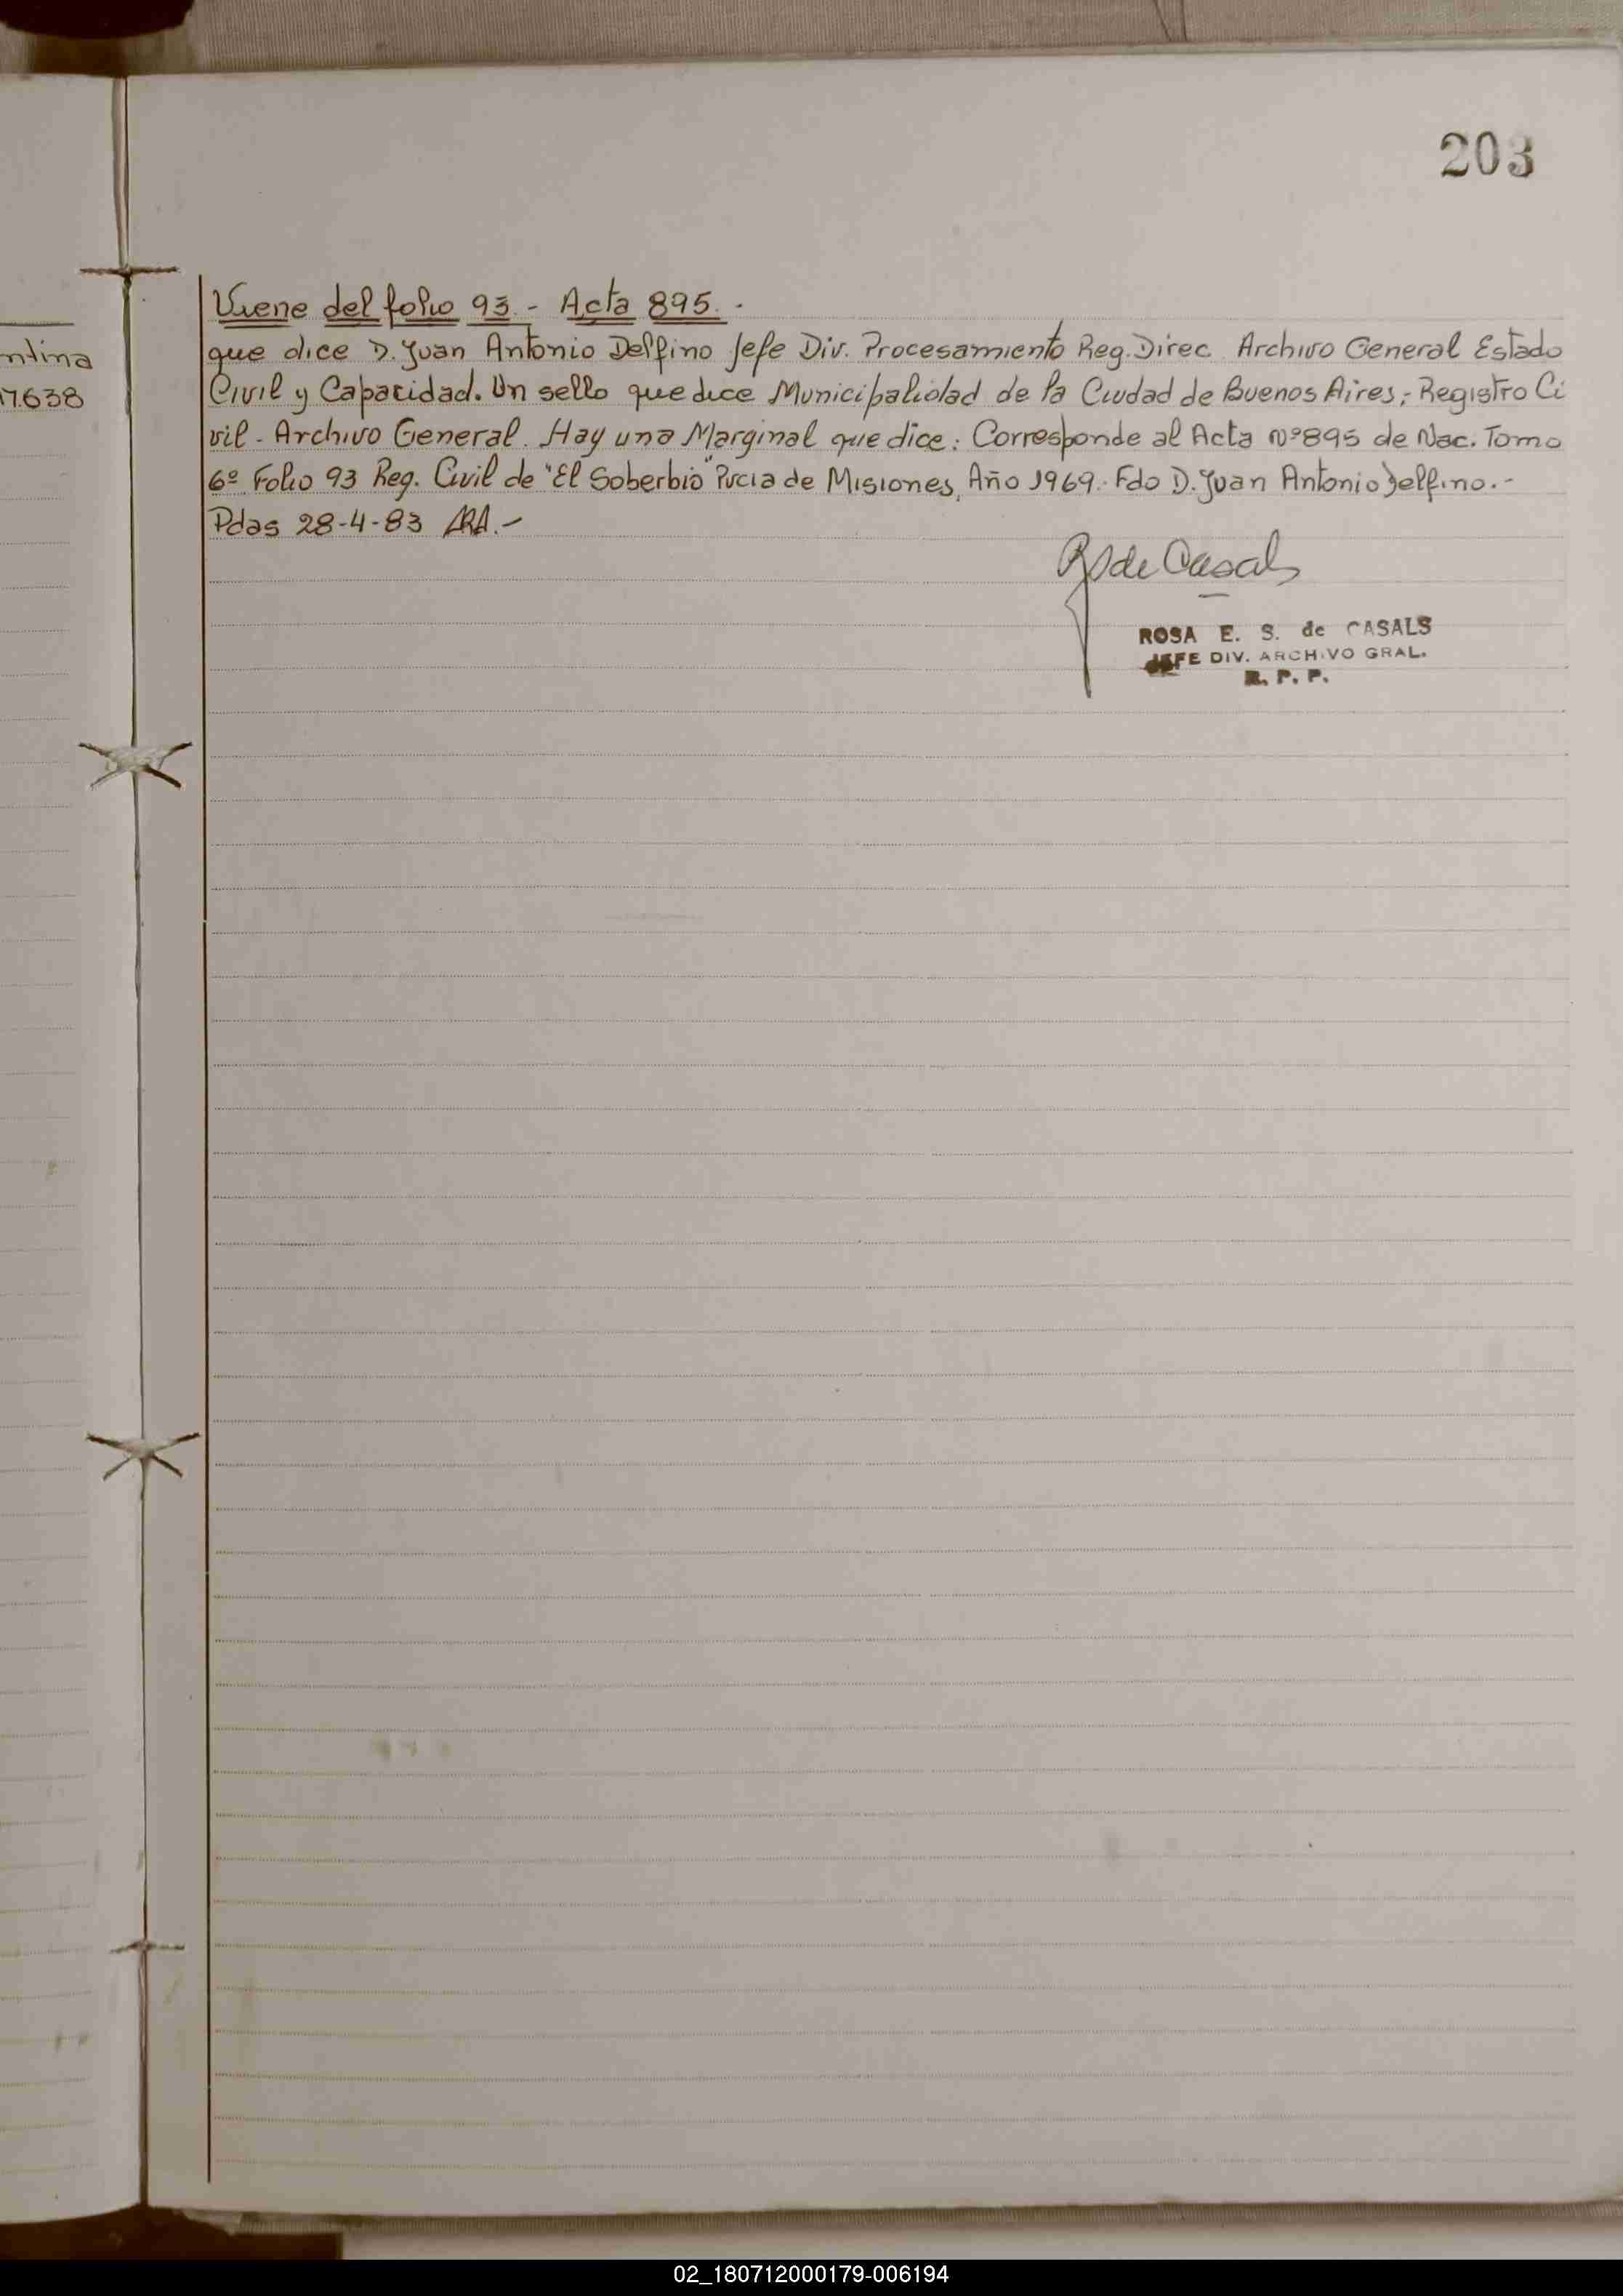 203
ntina
17.638
Viene del folio 93.- Acta 895.-
que dice D. Juan Antonio Delfino Jefe Div. Procesamiento Reg. Direc. Archivo General Estado
Civil y Capacidad. Un sello que dice Municipalidad de la Ciudad de Buenos Aires,- Registro Ci
vil - Archivo General. Hay una Marginal que dice: Corresponde al Acta Nº895 de Nac. Tomo
6º Folio 93 Reg. Civil de "El Soberbio" Pvcia de Misiones, Año 1969.- Fdo D. Juan Antonio Delfino.-
Pdas 28-4-83 ARA.-
RSde Casals
ROSA E. S. de CASALS
JEFE DIV. ARCHIVO GRAL.
R. P. P.
02_180712000179-006194